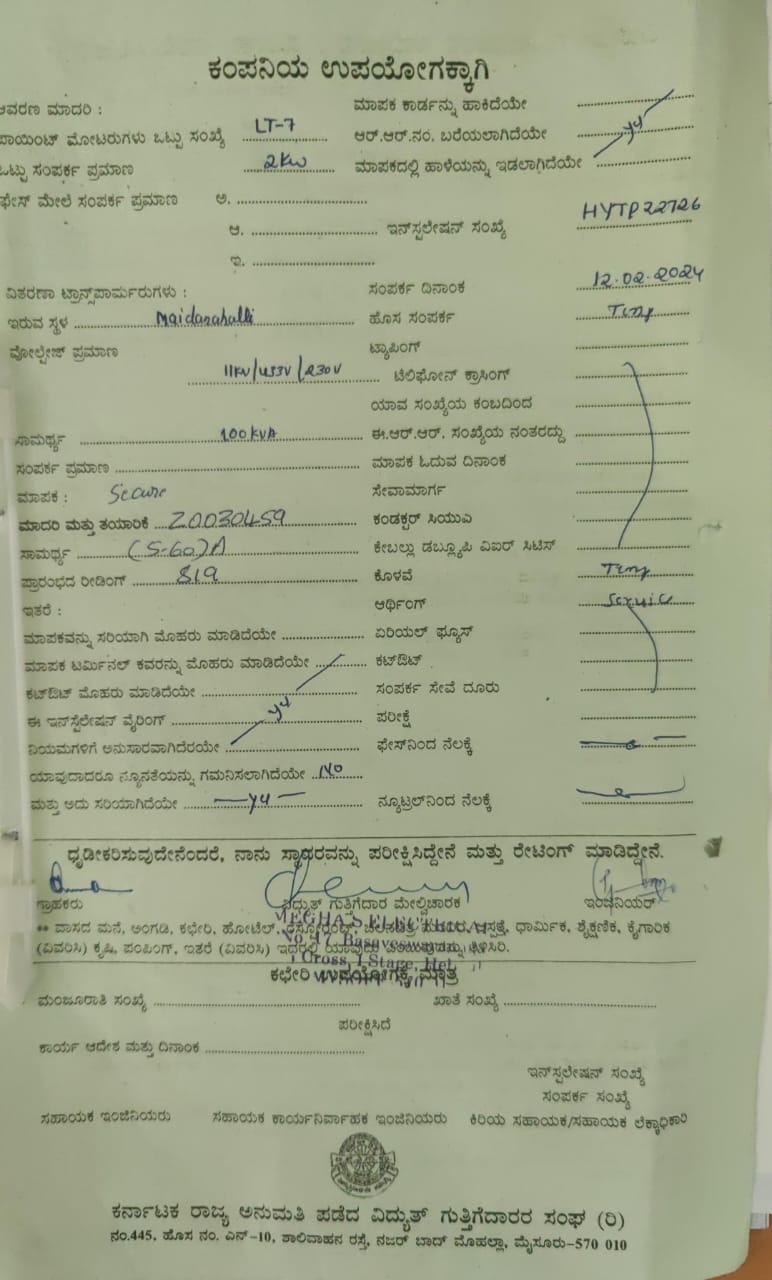 ಕಂಪನಿಯ ಉಪಯೋಗಕ್ಕಾಗಿ
ಆವರಣ ಮಾದರಿ : ಮಾಪಕ ಕಾರ್ಡನ್ನು ಹಾಕಿದೆಯೇ
ಪಾಯಿಂಟ್ ಮೋಟರುಗಳು ಒಟ್ಟು ಸಂಖ್ಯೆ LT-7 ಆರ್.ಆರ್.ನಂ. ಬರೆಯಲಾಗಿದೆಯೇ
ಒಟ್ಟು ಸಂಪರ್ಕ ಪ್ರಮಾಣ 2Kw ಮಾಪಕದಲ್ಲಿ ಹಾಳೆಯನ್ನು ಇಡಲಾಗಿದೆಯೇ
ಫೇಸ್ ಮೇಲೆ ಸಂಪರ್ಕ ಪ್ರಮಾಣ ಅ.
ಆ. ಇನ್‌ಸ್ಪಲೇಷನ್ ಸಂಖ್ಯೆ HYTP22726
ಇ.
ವಿತರಣಾ ಟ್ರಾನ್ಸ್‌ಪಾರ್ಮರುಗಳು : ಸಂಪರ್ಕ ದಿನಾಂಕ 12.02.2024
ಇರುವ ಸ್ಥಳ Maidanahalli ಹೊಸ ಸಂಪರ್ಕ Temp
ವೋಲ್ಟೇಜ್ ಪ್ರಮಾಣ ಟ್ಯಾಪಿಂಗ್
11KV/433V/230V ಟೆಲಿಫೋನ್ ಕ್ರಾಸಿಂಗ್
ಯಾವ ಸಂಖ್ಯೆಯ ಕಂಬದಿಂದ
ಸಾಮರ್ಥ್ಯ 100KVA ಈ.ಆರ್.ಆರ್. ಸಂಖ್ಯೆಯ ನಂತರದ್ದು
ಸಂಪರ್ಕ ಪ್ರಮಾಣ ಮಾಪಕ ಓದುವ ದಿನಾಂಕ
ಮಾಪಕ : Secure ಸೇವಾಮಾರ್ಗ
ಮಾದರಿ ಮತ್ತು ತಯಾರಿಕೆ Z0030459 ಕಂಡಕ್ಟರ್ ಸಿಯುವಿ
ಸಾಮರ್ಥ್ಯ (5-60)A ಕೇಬಲ್ಲು ಡಬ್ಲ್ಯೂಪಿ ವಿಐರ್ ಸಿಟಿಸ್
ಪ್ರಾರಂಭದ ರೀಡಿಂಗ್ 819 ಕೊಳವೆ Temp
ಇತರೆ : ಆರ್ಥಿಂಗ್ Service
ಮಾಪಕವನ್ನು ಸರಿಯಾಗಿ ಮೊಹರು ಮಾಡಿದೆಯೇ ಏರಿಯಲ್ ಫ್ಯೂಸ್
ಮಾಪಕ ಟರ್ಮಿನಲ್ ಕವರನ್ನು ಮೊಹರು ಮಾಡಿದೆಯೇ ಕಟ್‌ಔಟ್
ಕಟ್‌ಔಟ್ ಮೊಹರು ಮಾಡಿದೆಯೇ ಸಂಪರ್ಕ ಸೇವೆ ದೂರು
ಈ ಇನ್‌ಸ್ಪೆಲೇಷನ್ ವೈರಿಂಗ್ ಪರೀಕ್ಷೆ
ನಿಯಮಗಳಿಗೆ ಅನುಸಾರವಾಗಿದೆರಯೇ ಫೇಸ್‌ನಿಂದ ನೆಲಕ್ಕೆ
ಯಾವುದಾದರೂ ನ್ಯೂನತೆಯನ್ನು ಗಮನಿಸಲಾಗಿದೆಯೇ No
ಮತ್ತು ಅದು ಸರಿಯಾಗಿದೆಯೇ ನ್ಯೂಟ್ರಲ್‌ನಿಂದ ನೆಲಕ್ಕೆ
ಧೃಡೀಕರಿಸುವುದೇನೆಂದರೆ, ನಾನು ಸ್ಥಾವರವನ್ನು ಪರೀಕ್ಷಿಸಿದ್ದೇನೆ ಮತ್ತು ರೇಟಿಂಗ್ ಮಾಡಿದ್ದೇನೆ.
ಗ್ರಾಹಕರು ವಿದ್ಯುತ್ ಗುತ್ತಿಗೆದಾರ ಮೇಲ್ವಿಚಾರಕ ಇಂಜಿನಿಯರ್
** ವಾಸದ ಮನೆ, ಅಂಗಡಿ, ಕಛೇರಿ, ಹೋಟೆಲ್, ಧಾರ್ಮಿಕ, ಶೈಕ್ಷಣಿಕ, ಕೈಗಾರಿಕ
(ವಿವರಿಸಿ) ಕೃಷಿ, ಪಂಪಿಂಗ್, ಇತರೆ (ವಿವರಿಸಿ) ತಿಳಿಸಿರಿ.
ಕಛೇರಿ ಉಪಯೋಗಕ್ಕೆ ಮಾತ್ರ
ಮಂಜೂರಾತಿ ಸಂಖ್ಯೆ ಖಾತೆ ಸಂಖ್ಯೆ
ಪರೀಕ್ಷಿಸಿದೆ
ಕಾರ್ಯ ಆದೇಶ ಮತ್ತು ದಿನಾಂಕ
ಇನ್‌ಸ್ಪಲೇಷನ್ ಸಂಖ್ಯೆ
ಸಂಪರ್ಕ ಸಂಖ್ಯೆ
ಸಹಾಯಕ ಇಂಜಿನಿಯರು ಸಹಾಯಕ ಕಾರ್ಯನಿರ್ವಾಹಕ ಇಂಜಿನಿಯರು ಕಿರಿಯ ಸಹಾಯಕ/ಸಹಾಯಕ ಲೆಕ್ಕಾಧಿಕಾರಿ
ಕರ್ನಾಟಕ ರಾಜ್ಯ ಅನುಮತಿ ಪಡೆದ ವಿದ್ಯುತ್ ಗುತ್ತಿಗೆದಾರರ ಸಂಘ (ರಿ)
ನಂ.445, ಹೊಸ ನಂ. ಎನ್-10, ಶಾಲಿವಾಹನ ರಸ್ತೆ, ನಜರ್ ಬಾದ್ ಮೊಹಲ್ಲಾ, ಮೈಸೂರು-570 010